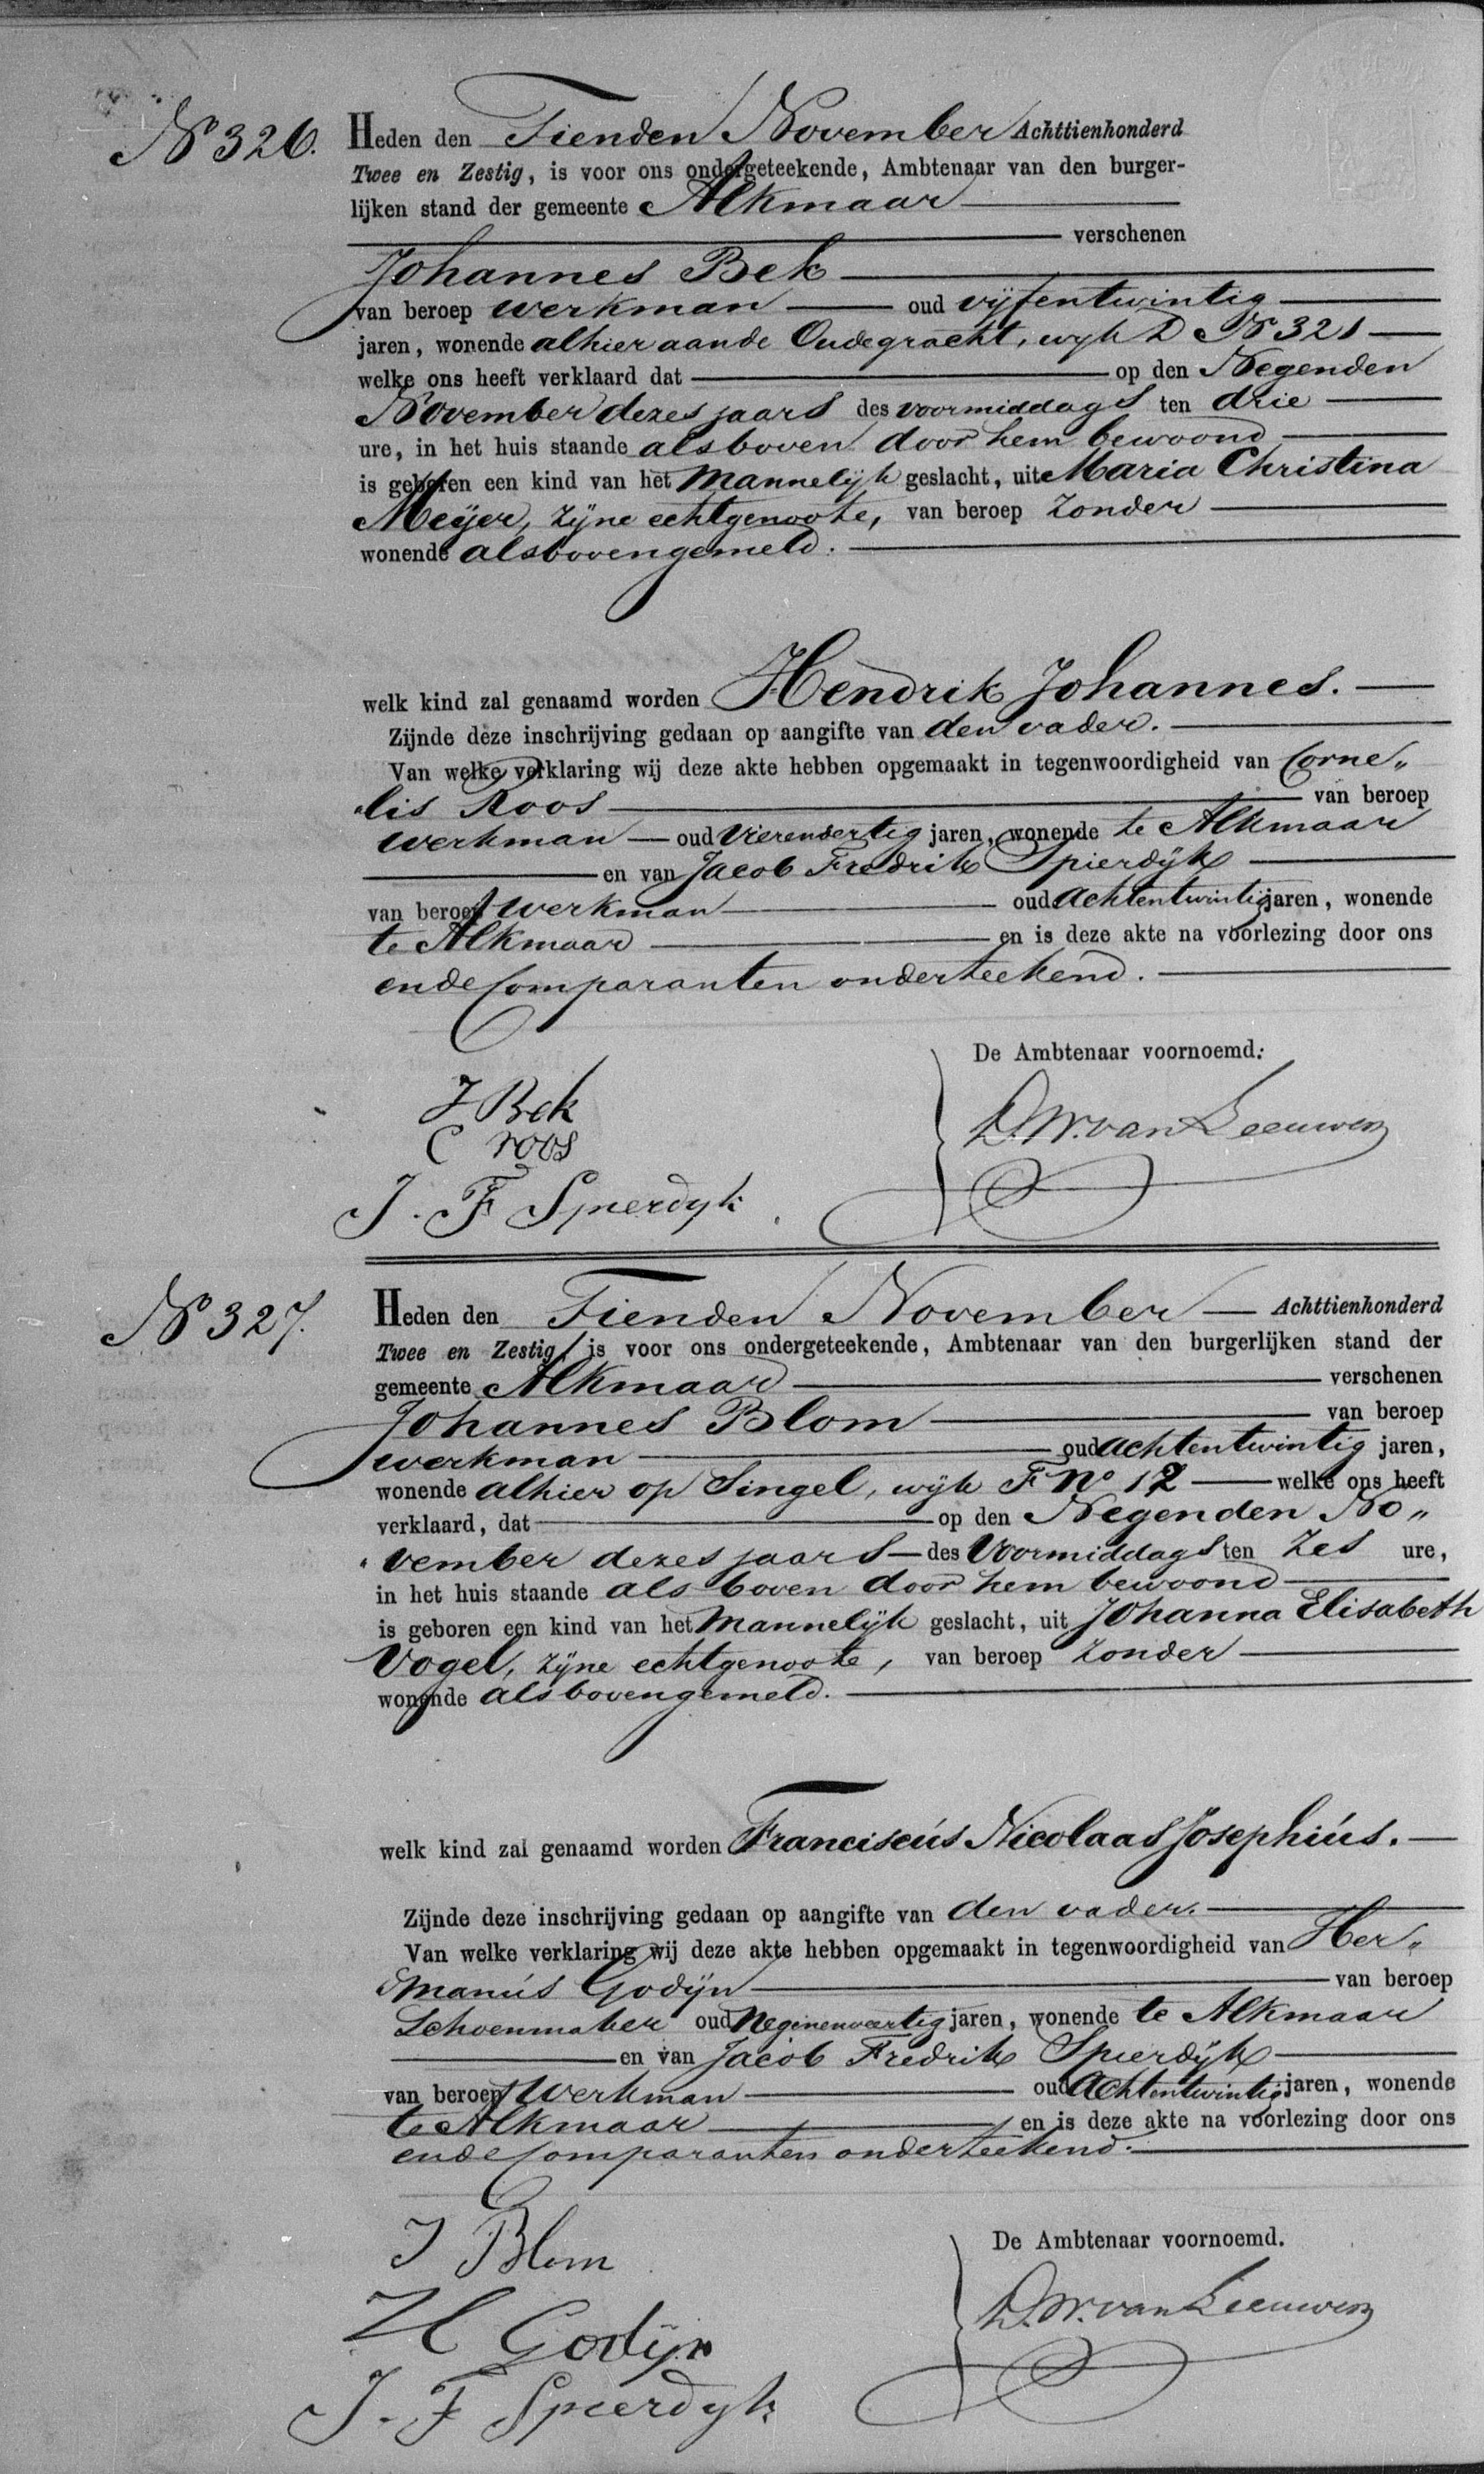 N° 326.
Heden den Tienden November Achttienhonderd
Twee en Zestig, is voor ons ondergeteekende, Ambtenaar van den burger-
lijken stand der gemeente Alkmaar
verschenen
Johannes Bek
van beroep werkman oud vijfentwintig
jaren, wonende alhier aande Oudegracht, wijk D N° 321
welke ons heeft verklaard dat op den Negenden
November dezes jaars des voormiddags ten drie
ure, in het huis staande alsboven door hem bewoond
is geboren een kind van het Mannelijk geslacht, uit Maria Christina
Meijer, zijne echtgenoote, van beroep zonder
wonende alsbovengemeld.
welk kind zal genaamd worden Hendrik Johannes.
Zijnde deze inschrijving gedaan op aangifte van den vader.
Van welke verklaring wij deze akte hebben opgemaakt in tegenwoordigheid van Corne„
„lis Roos van beroep
werkman oud vierendertig jaren, wonende te Alkmaar
en van Jacob Fredrik Spierdijk
van beroep werkman oud achtentwintig jaren, wonende
te Alkmaar en is deze akte na voorlezing door ons
en de Comparanten onderteekend.
De Ambtenaar voornoemd:
J Bek
C roos
D.W. van Leeuwen
J. F Spierdyk
N° 327.
Heden den Tienden November Achttienhonderd
Twee en Zestig, is voor ons ondergeteekende, Ambtenaar van den burgerlijken stand der
gemeente Alkmaar verschenen
Johannes Blom van beroep
werkman oud achtentwintig jaren,
wonende alhier op Singel, wijk F N° 12 welke ons heeft
verklaard, dat op den Negenden No„
„vember dezes jaars des Voormiddags ten zes ure,
in het huis staande als boven door hem bewoond
is geboren een kind van het Mannelijk geslacht, uit Johanna Elisabeth
Vogel, zijne echtgenoote, van beroep zonder
wonende alsbovengemeld.
welk kind zal genaamd worden Franciscús Nicolaas Josephiús.
Zijnde deze inschrijving gedaan op aangifte van den vader.
Van welke verklaring wij deze akte hebben opgemaakt in tegenwoordigheid van Her„
„manús Godijn van beroep
Schoenmaker oud Negenenveertig jaren, wonende te Alkmaar
en van Jacob Fredrik Spierdijk
van beroep Werkman oud Achtentwintig jaren, wonende
te Alkmaar en is deze akte na voorlezing door ons
en de Comparanten onderteekend.
De Ambtenaar voornoemd.
J Blom
D.W. van Leeuwen
H Godijn
J. F Spierdyk